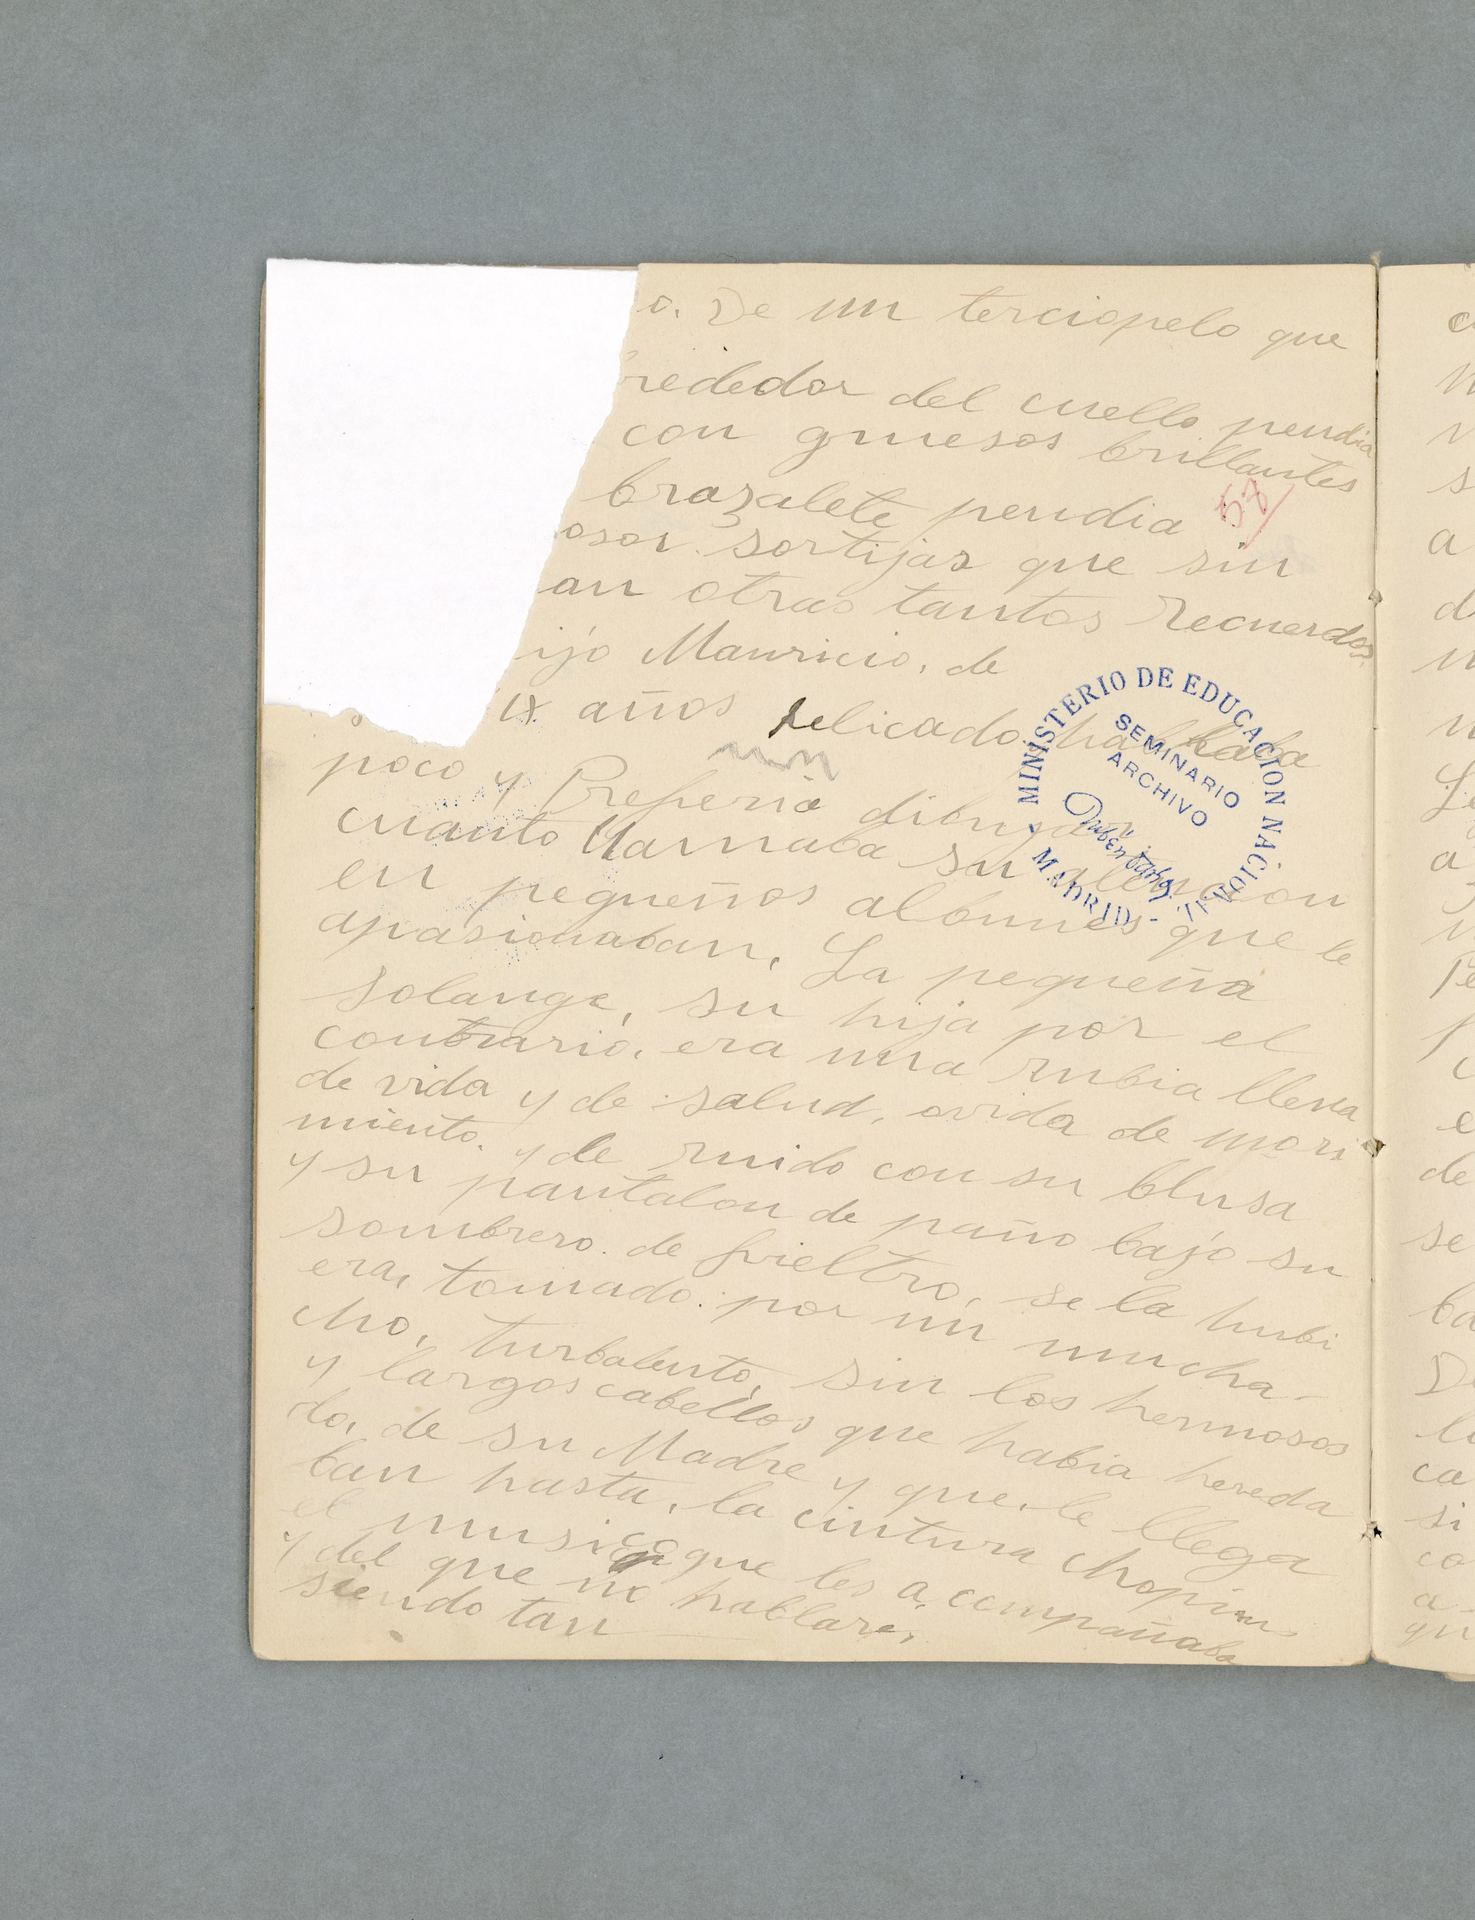 o. De un terciopelo que
rededor del cuello pendia
con gruesos brillantes
brazalete pendia 57
osos sortijas que sin
an otras tantos recuerdos
ijo Mauricio, de
años delicado, hablaba
poco y Preferia dibujar
cuanto llamaba su atencion
en pequeños albumes que le
apasionaban, La pequeña
Solange, su hija por el
contrario, era una rubia llena
de vida y de salud, avida de movi
miento y de ruido con su blusa
y su pantalon de paño bajo su
sombrero de fieltro, se la hubi
era, tomado por un mucha-
cho, turbulento, sin los hermosos
y largos cabellos que habia hereda
do, de su Madre y que le llega
ban hasta, la cintura Chopin
el musico que les acompañaba
y del que no hablare,
siendo tan
MINISTERIO DE EDUCACION NACIONAL
SEMINARIO
ARCHIVO
Rubén Darío
MADRID